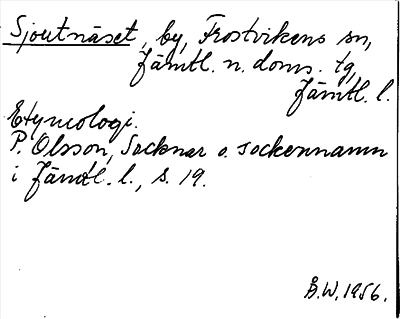 Sjoutnäset, by, Frostvikens sn,
Jämtl. n. doms. tg,
Jämtl. l.
Etymologi.
P. Olsson, Socknar o. sockennamn
i Jämtl. l., s. 19.
Å.W. 1956.